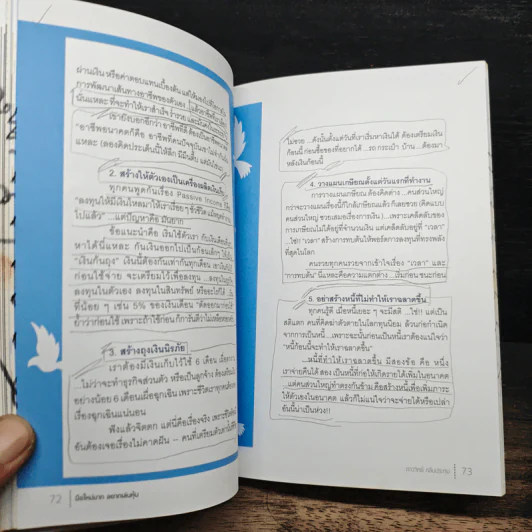 ผ่านเงิน หรือค่าตอบแทนเบื้องต้น แต่ให้มองไปที่โอกาส
การพัฒนาเส้นทางอาชีพของตัวเอง
นั่นแหละ ที่จะทำให้เราสำเร็จ ร่ำรวย
เขายังบอกอีกว่า อาชีพที่ดี
"อาชีพอนาคตก็คือ อาชีพที่คนปัจจุบัน
แหละ (ลองคิดประเด็นนี้ให้ลึก
2. สร้างให้ตัวเองเป็นเครื่องผลิตเงิน
ทุกคนพูดกันเรื่อง Passive Income
"ลงทุนให้มีเงินไหลมาให้เราเรื่อยๆ ชั่วชีวิต
ไปแล้ว" ...แต่ปัญหาคือ มันยาก
ข้อแนะนำคือ เริ่มใช้ตัวเรา กับเงินเดือน
หาได้นี่แหละ กันเงินออกไปเป็นก้อนเล็กๆ
"เงินก้นถุง" เงินนี้ต้องกันเท่ากันทุกเดือน
ก่อนใช้จ่าย จะเตรียมไว้เพื่อลงทุน
ลงทุนในตัวเอง ลงทุนในสินทรัพย์ หรืออะไรก็ได้
ที่น้อยๆ เช่น 5% ของเงินเดือน
ย้ำว่าก่อนใช้ เพราะถ้าใช้ก่อน
3. สร้างถุงเงินนิรภัย
เราต้องมีเงินเก็บไว้ใช้ 6 เดือน
...ไม่ว่าจะทำธุรกิจส่วนตัว หรือเป็นลูกจ้าง
อย่างน้อย 6 เดือนเผื่อฉุกเฉิน เพราะชีวิตเราทุกคน
เรื่องฉุกเฉินแน่นอน
ฟังแล้วจิตตก แต่นี่คือเรื่องจริง เพราะชีวิต
อันต้องเจอเรื่องไม่คาดฝัน -- คนที่เตรียมตัว
72 มือใหม่มาก อยากเล่นหุ้น
ไม่ขาย ...ดังนั้นตั้งแต่วันที่เราเริ่มหาเงินได้ ต้องเตรียมเงิน
ก้อนนี้ ก่อนซื้อของที่อยากได้ ...รถ กระเป๋า บ้าน ...ต้องมา
หลังเงินก้อนนี้
4. วางแผนเกษียณตั้งแต่วันแรกที่ทำงาน
การวางแผนเกษียณ ต้องคิดต่าง ...คนส่วนใหญ่
กว่าจะวางแผนเรื่องนี้ก็ใกล้เกษียณแล้ว ก็เลยซวย (คิดแบบ
คนส่วนใหญ่ ซวยเสมอเรื่องการเงิน) ...เพราะเคล็ดลับของ
การเกษียณไม่ได้อยู่ที่จำนวนเงิน แต่เคล็ดลับอยู่ที่ "เวลา"
...ใช่! "เวลา" สร้างการทบต้นให้พอร์ตการลงทุนที่ทรงพลัง
ที่สุดในโลก
คนรวยทุกคนรวยจากเข้าใจเรื่อง "เวลา" และ
"การทบต้น" นี่แหละคือความแตกต่าง ...เริ่มก่อน ชนะก่อน
5. อย่าสร้างหนี้ที่ไม่ทำให้เราฉลาดขึ้น
ทุกคนรู้ดี เมื่อหนี้เยอะๆ จะมีสติ ...ใช่!! แต่เป็น
สติแตก คนที่คิดฆ่าตัวตายในโลกทุนนิยม ล้วนก่อกำเนิด
จากการเป็นหนี้ ...เพราะฉะนั้นก่อนเป็นหนี้เราต้องแน่ใจว่า
"หนี้ก้อนนี้จะทำให้เราฉลาดขึ้น"
...หนี้ที่ทำให้เราฉลาดขึ้น มีสองข้อ คือ หนึ่ง
เราจ่ายคืนได้ สอง เป็นหนี้ที่ก่อให้เกิดรายได้เพิ่มในอนาคต
...แต่คนส่วนใหญ่ทำตรงกันข้าม คือสร้างหนี้เพื่อเพิ่มภาระ
ให้ตัวเองในอนาคต แล้วก็ไม่แน่ใจว่าจะจ่ายได้หรือเปล่า
อันนี้น่าเป็นห่วง!!
73